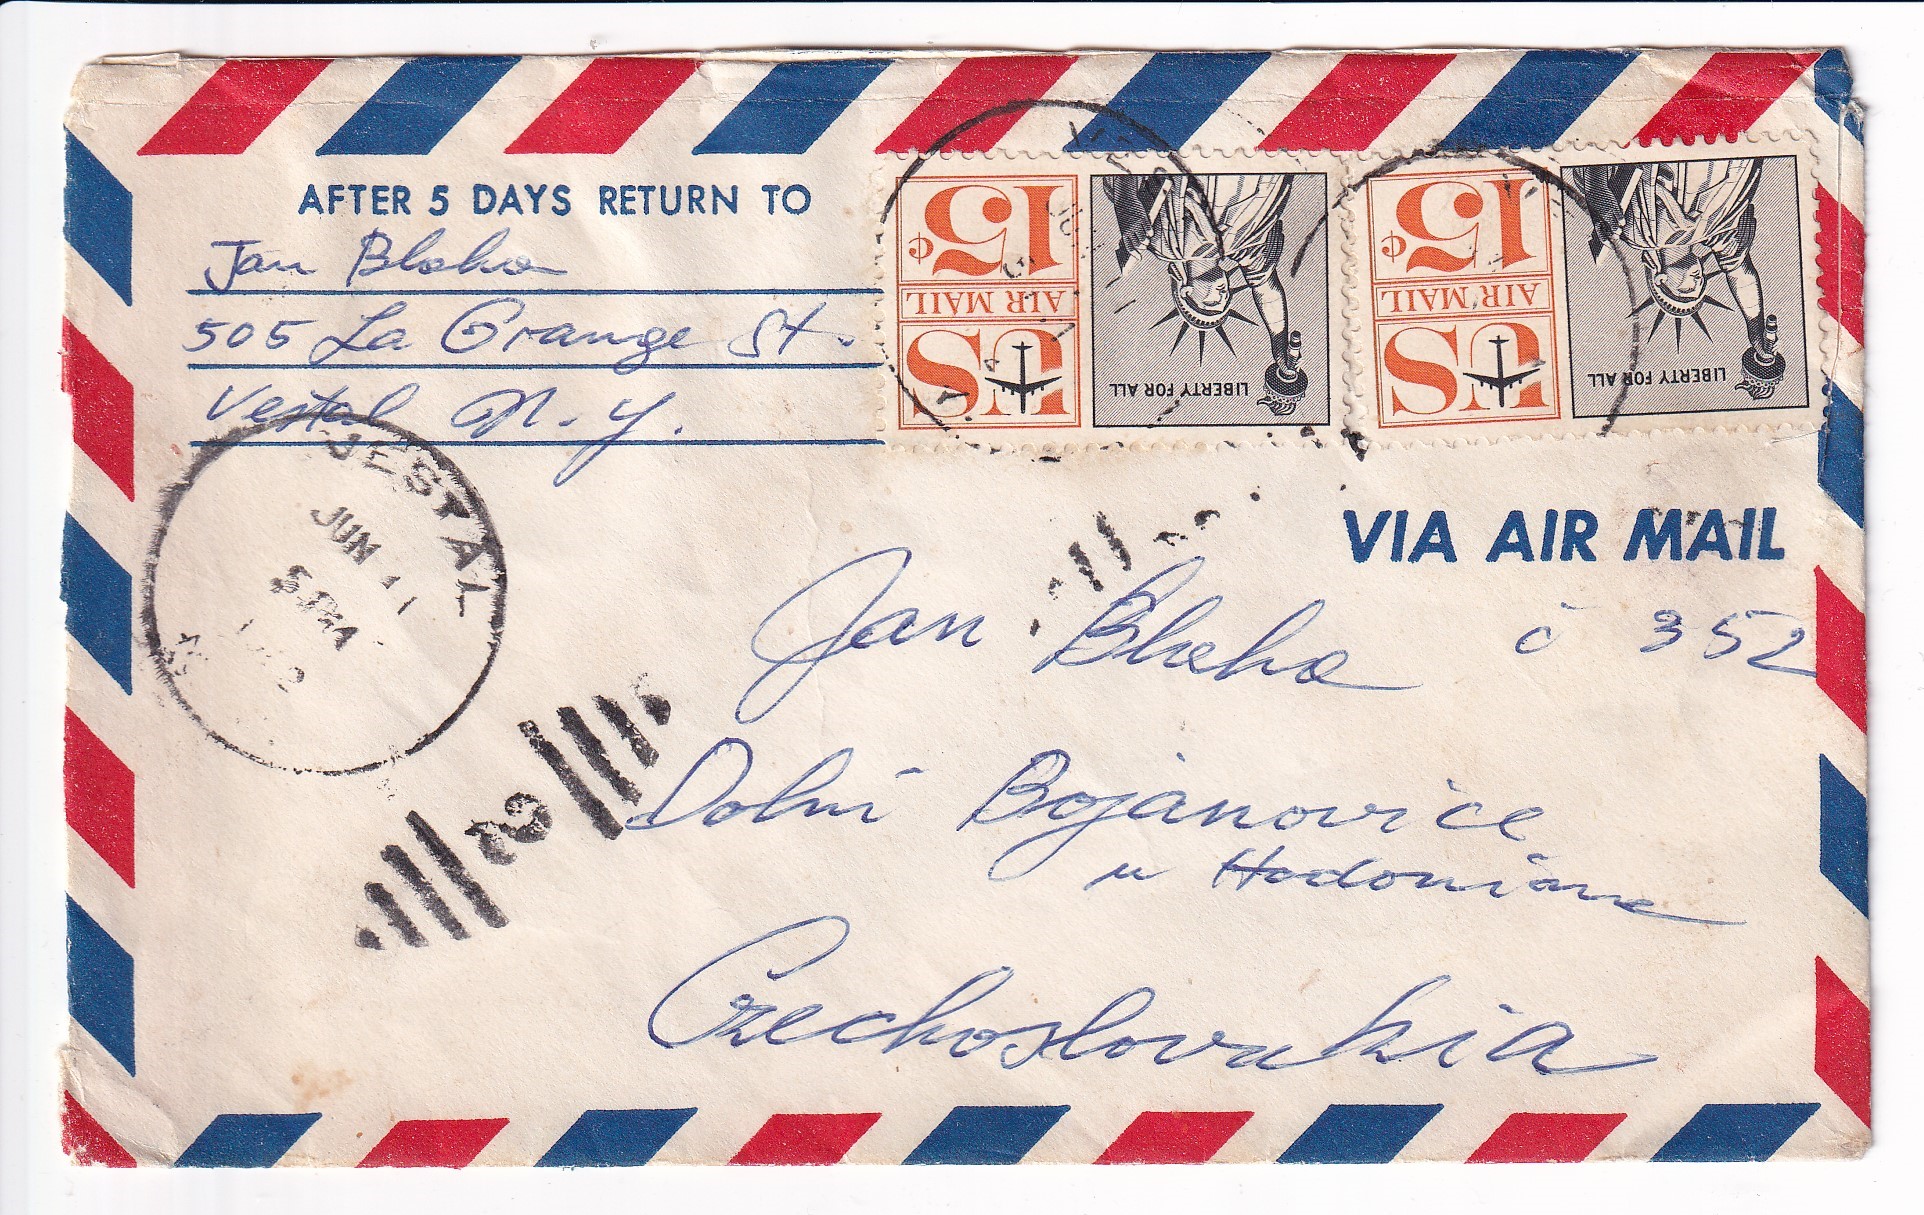 AFTER 5 DAYS RETURN TO
Jan Blaha
505 La Grange St.
Vestal N.Y.
15¢
AIR MAIL
US
LIBERTY FOR ALL
15¢
AIR MAIL
US
LIBERTY FOR ALL
VESTAL
JUN 11
VIA AIR MAIL
Jan Blaha č 352
Dolní Bojanovice
u Hodonína
Czechoslovakia